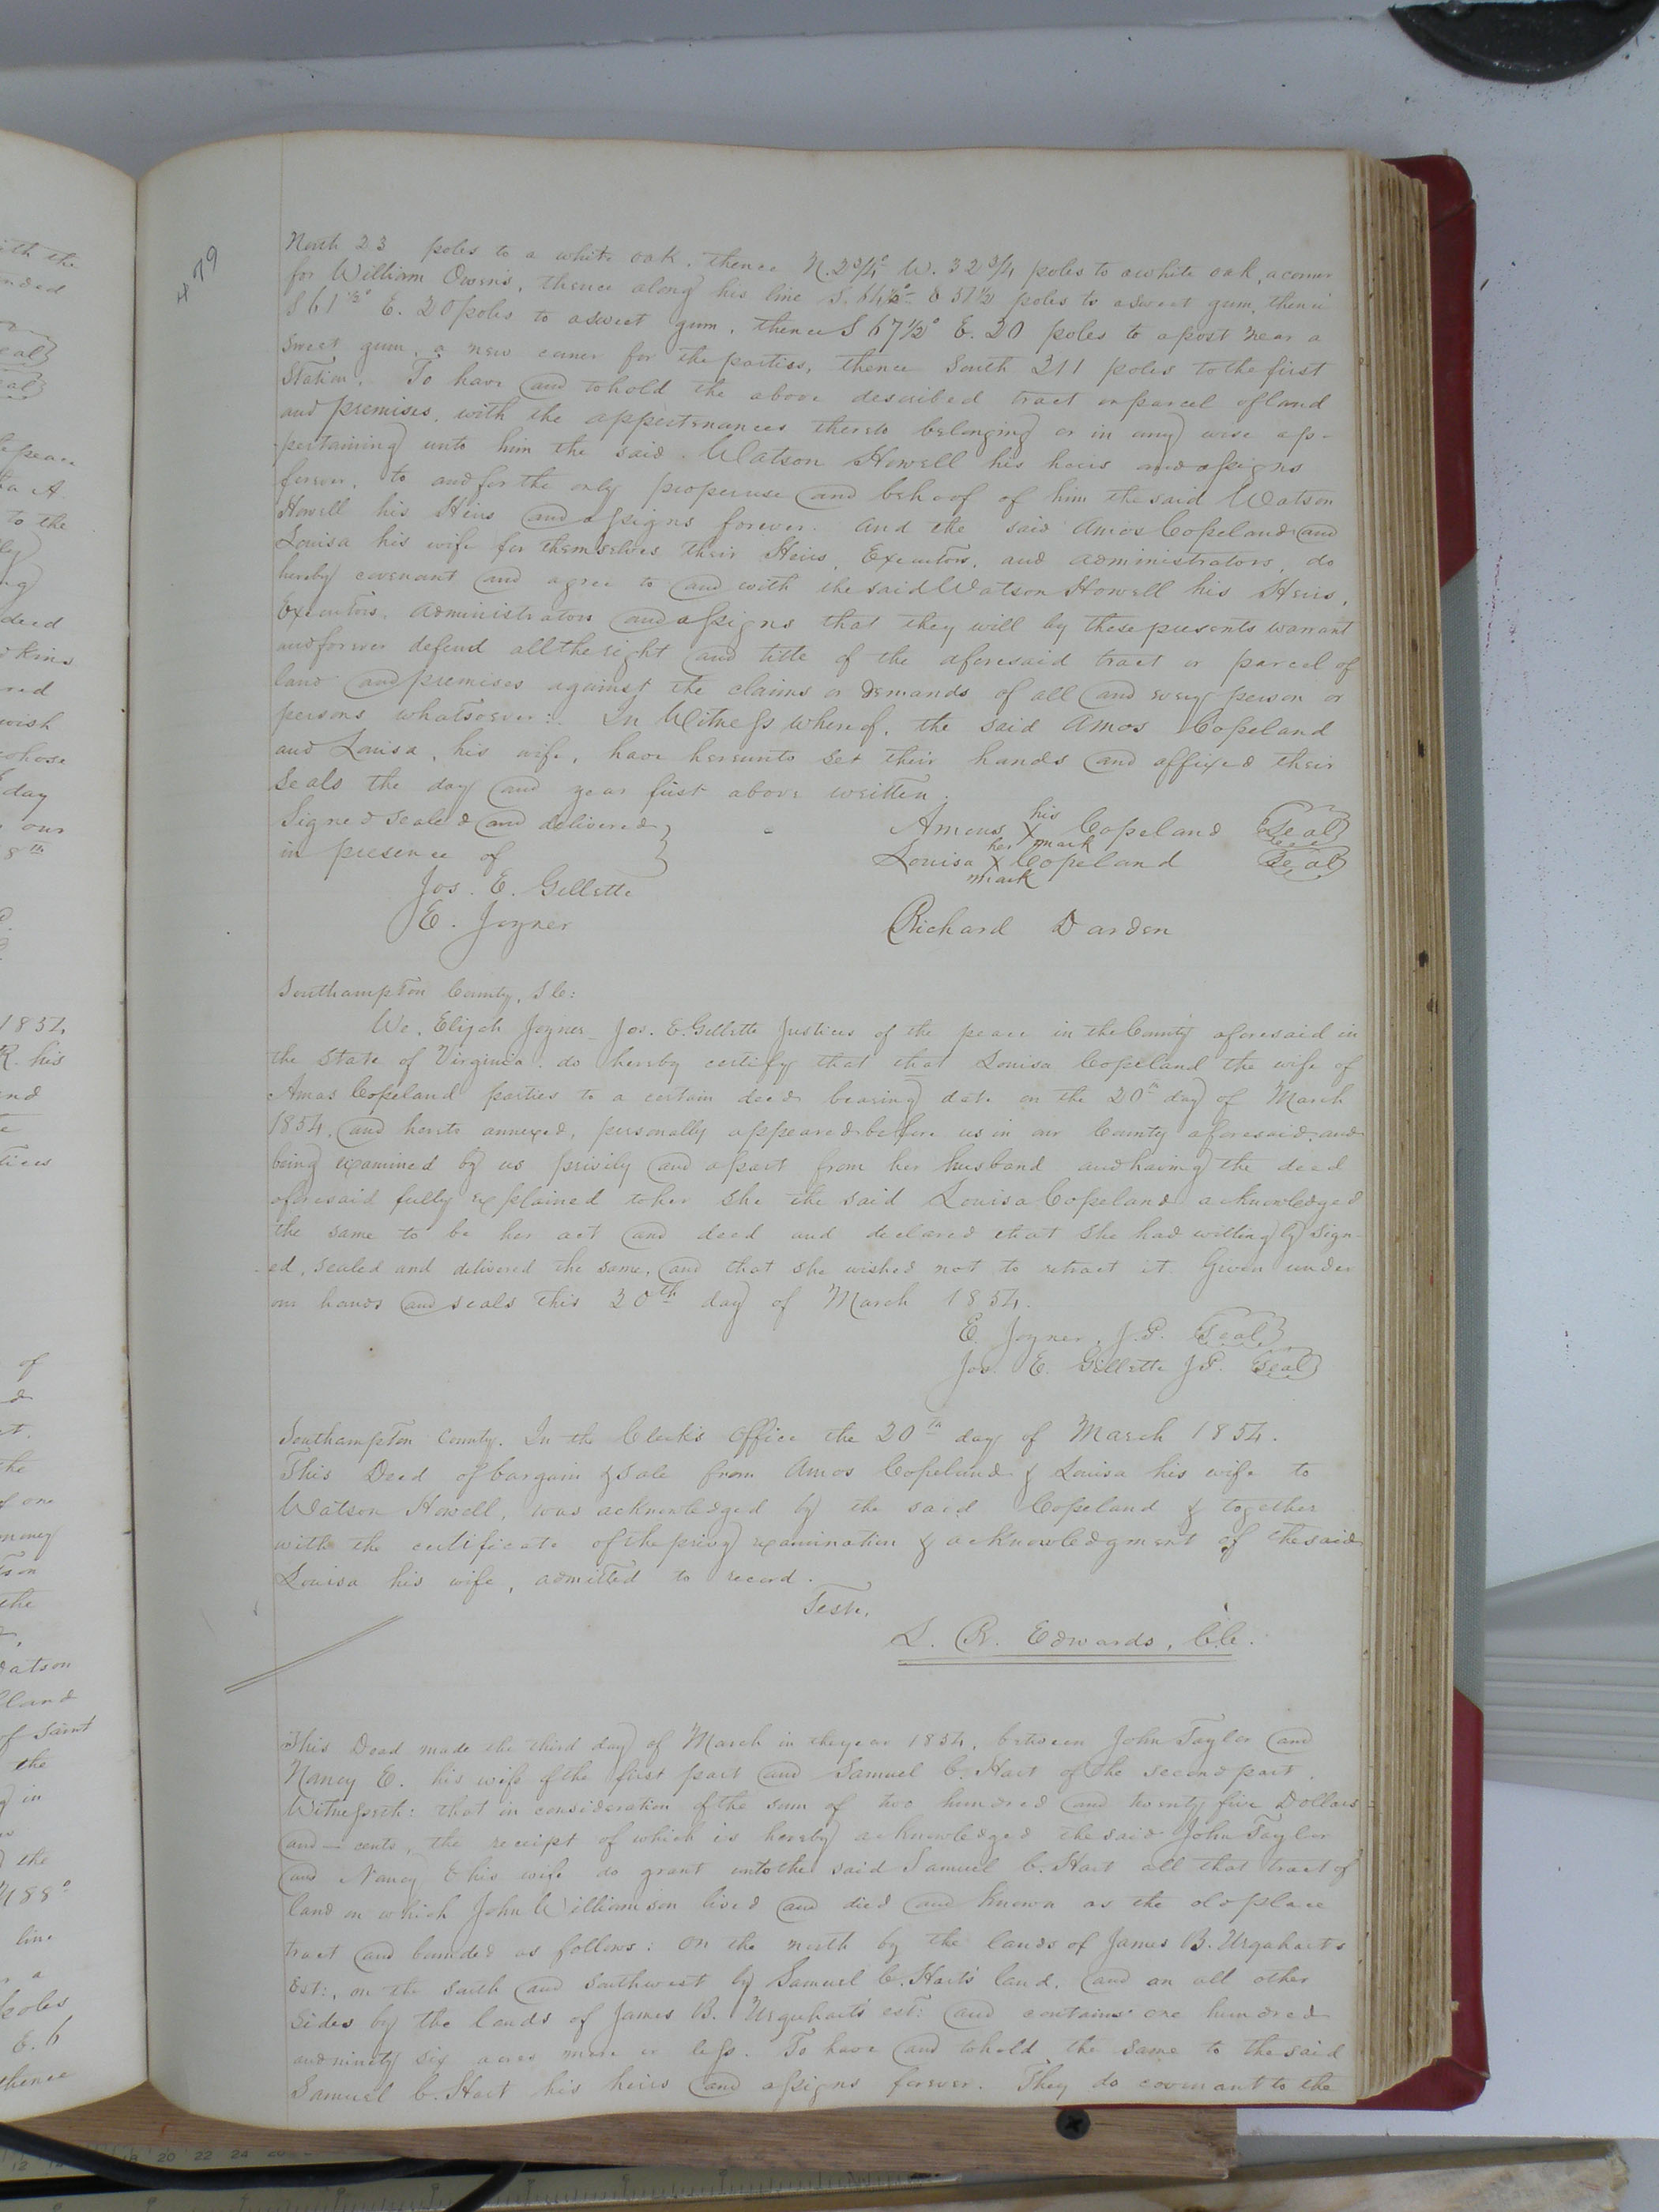 479
North 23 poles to a white oak, thence N. 2 3/4° W. 32 3/4 poles to a white oak, a corner
for William Owens, thence along his line S. 64 1/2° E 57 1/2 poles to a sweet gum, thence
S 61 1/2° E. 20 poles to a sweet gum, thence S 67 1/2° E. 20 poles to a post near a
sweet gum, a new corner for the parties, thence South 211 poles to the first
Station. To have and to hold the above described tract or parcel of land
and premises, with the appertenances thereto belonging or in any wise ap-
pertaining unto him the said Watson Howell his heirs and assigns
forever, to and for the only proper use and behoof of him the said Watson
Howell his Heirs and assigns forever. And the said Amos Copeland and
Louisa his wife for themselves their Heirs, Executors, and administrators, do
hereby covenant and agree to and with the said Watson Howell his Heirs,
Executors, administrators and assigns that they will by these presents warrant
and forever defend all the right and title of the aforesaid tract or parcel of
land and premises against the claims or demands of all and every person or
persons whatsoever:. In Witness whereof, the said Amos Copeland
and Louisa, his wife, have hereunto set their hands and affixed their
seals the day and year first above written.
Signed sealed and delivered
in presence of
Jos. E. Gillette
E. Joyner
his
Amous X Copeland Seal
mark
her
Louisa X Copeland Seal
mark
Richard Darden
Southampton County, SC:
We, Elijah Joyner Jos. E. Gillette Justices of the peace in the County aforesaid in
the State of Virginia, do hereby certify that that Louisa Copeland the wife of
Amos Copeland parties to a certain deed bearing date on the 20th day of March
1854, and hereto annexed, personally appeared before us in our County aforesaid, and
being examined by us privily and apart from her husband and having the deed
aforesaid fully explained to her she the said Louisa Copeland acknowledged
the same to be her act and deed and declared that she had willingly sign-
ed, sealed and delivered the same, and that she wished not to retract it. Given under
our hands and seals this 20th day of March 1854.
E. Joyner, J.P. Seal
Jos. E. Gillette J.P. Seal
Southampton County. In the Clerk's Office the 20th day of March 1854.
This Deed of bargain & sale from Amos Copeland & Louisa his wife to
Watson Howell, was acknowledged by the said Copeland & together
with the certificate of the privy examination & acknowledgment of the said
Louisa his wife, admitted to record.
Teste,
L. R. Edwards, C.C.
This Deed made the third day of March in the year 1854, between John Taylor and
Nancy E. his wife of the first part and Samuel C. Hart of the second part,
Witnesseth: that in consideration of the sum of two hundred and twenty five Dollars
and — cents, the receipt of which is hereby acknowledged the said John Taylor
and Nancy E his wife do grant unto the said Samuel C. Hart all that tract of
land on which John Williamson lived and died and known as the old place
tract and bounded as follows: on the north by the lands of James B. Urquharts
Est:, on the south and southwest by Samuel C. Hart's land, and on all other
sides by the lands of James B. Urquharts est: and contains one hundred
and ninety six acres more or less. To have and to hold the same to the said
Samuel C. Hart his heirs and assigns forever. They do covenant to the